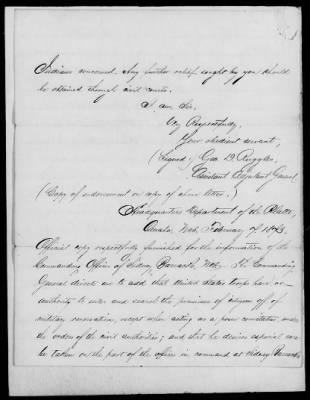 Indians concerned. Any further relief sought by you should
be obtained through civil courts.
I am Sir,
Very Respectfully,
Your obedient servant,
(Signed) Geo. D. Ruggles,
Assistant Adjutant General.
(Copy of endorsement on copy of above letter.)
Headquarters Department of the Platte,
Omaha, Neb. February 7th 1883.
Official copy respectfully furnished for the information of the
Commanding Officer of Sidney Barracks, Neb. The Commanding
General directs me to add that United States troops have no
authority to enter and search the premises of citizens off of
military reservation, except when acting as a posse comitatus under
the orders of the civil authorities; and that he desires especial care
be taken on the part of the officer in command at Sidney Barracks